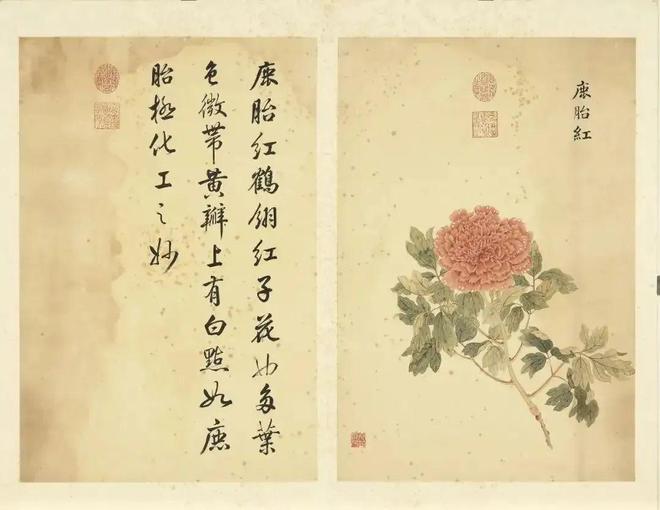 鹿胎紅
鹿胎紅鶴翎紅子花也多葉
色微帶黃瓣上有白點如鹿
胎極化工之妙